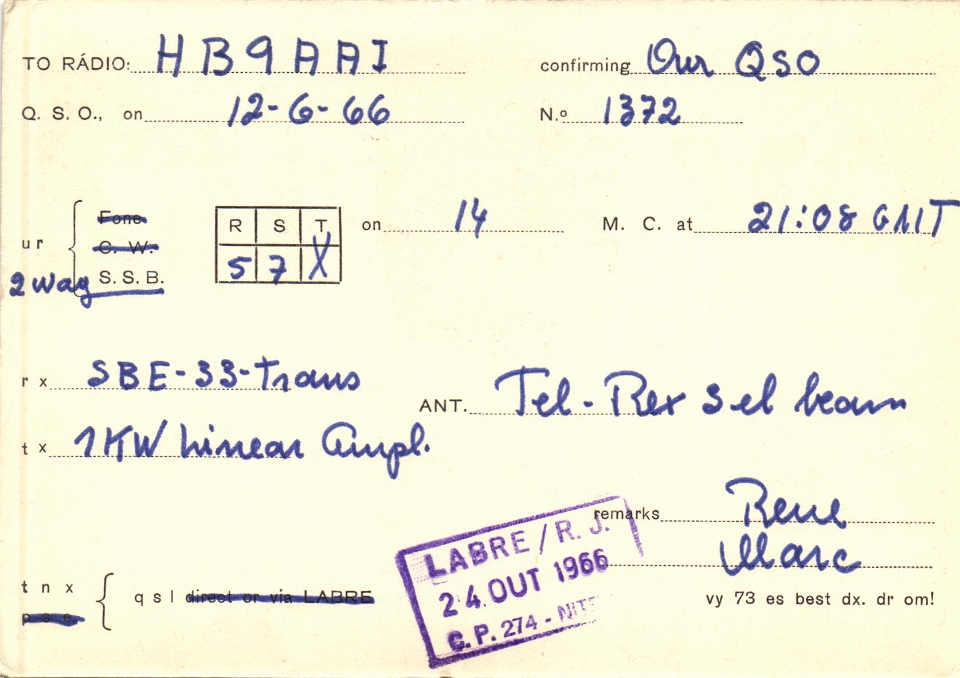 TO RÁDIO: HB9AAI confirming Our QSO
Q. S. O., on 12-6-66 N.º 1372
Fone
R S T on 14 M. C. at 21:08 GMT
ur C. W.
5 7 X
2 way S. S. B.
rx SBE-33-Trans
ANT. Tel-Rex 3 el beam
tx 1KW Linear Ampl.
remarks Rene
Marc
LABRE / R. J.
24 OUT 1966
C. P. 274 - NIT
tnx qsl direct or via LABRE
pse
vy 73 es best dx. dr om!